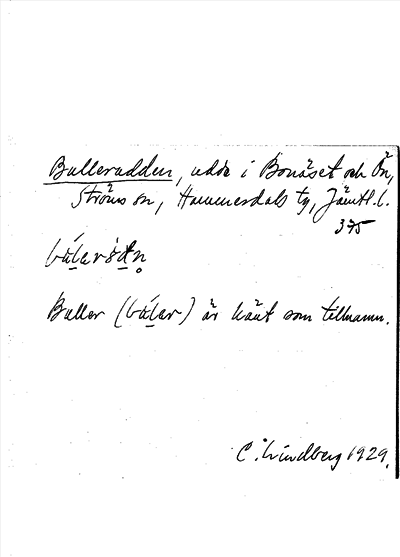 Bullerudden, udde i Bonäset och Ön,
Ströms sn, Hammerdals tg, Jämtl. l.
375
Buller (búlar) är känt som tillnamn.
C. Lindberg 1929.